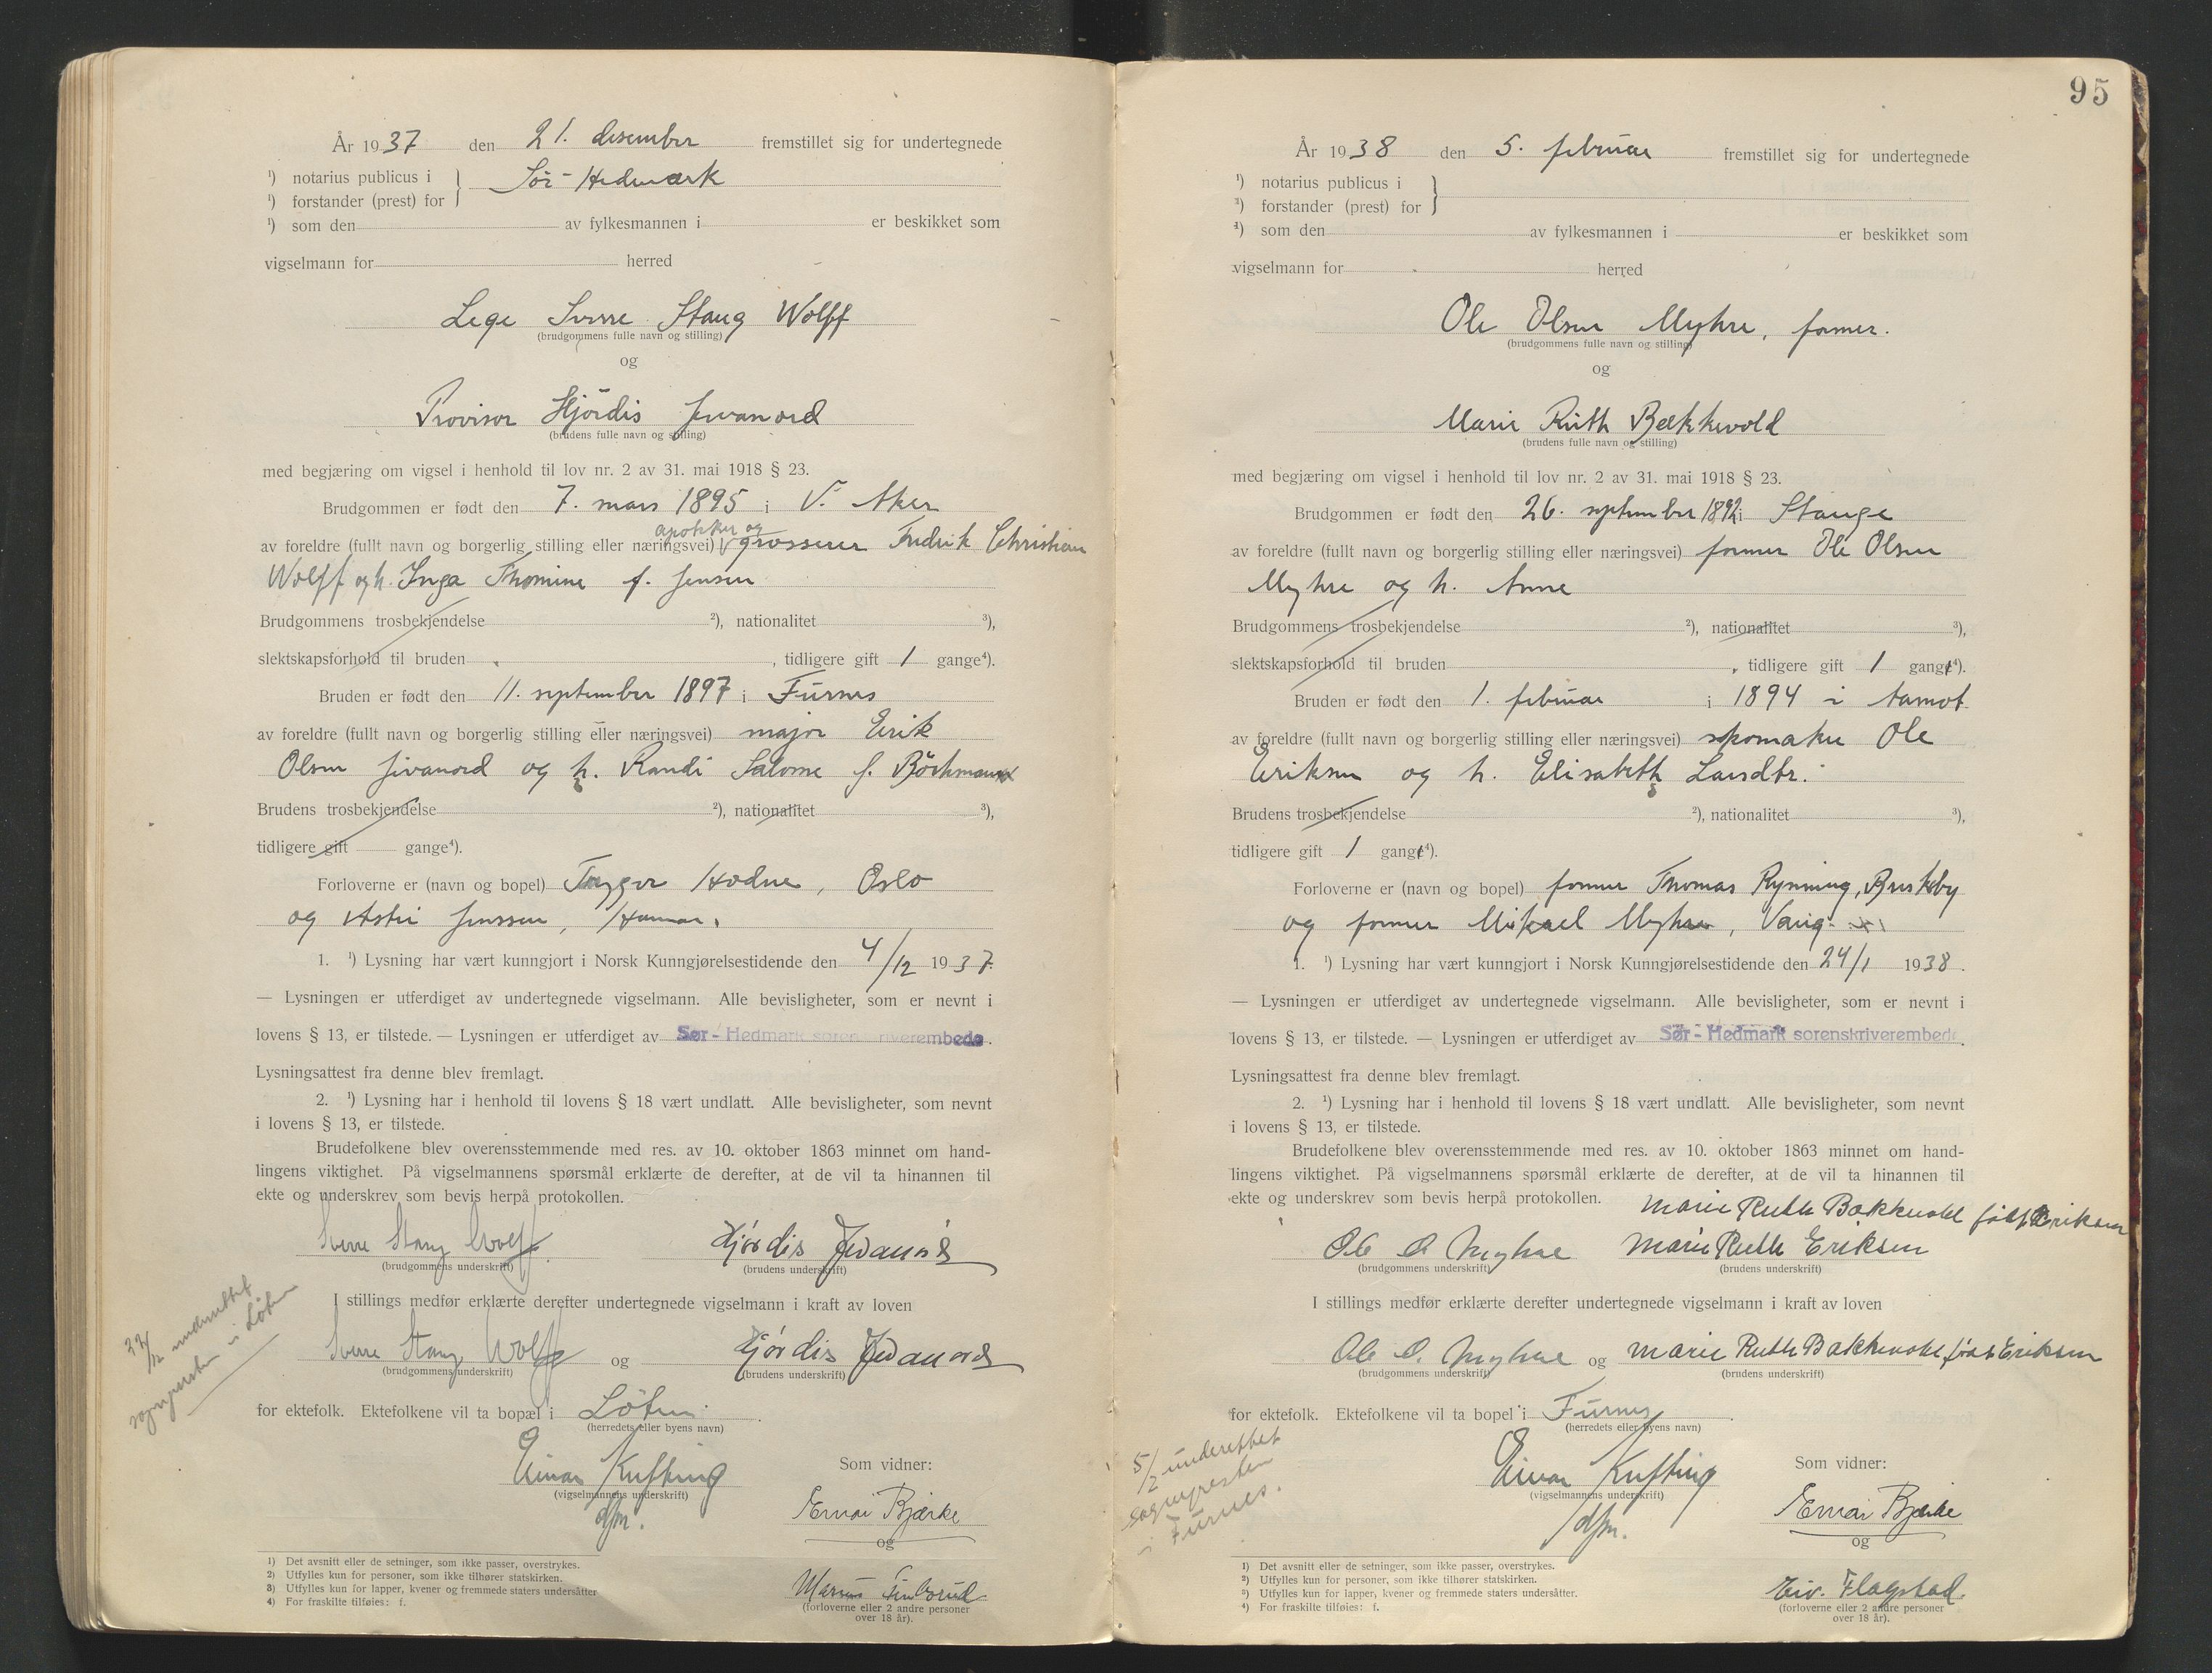 År 1937 den 21. desember fremstillet sig for undertegnede
¹) notarius publicus i } Sør-Hedmark
¹) forstander (prest) for
¹) som den av fylkesmannen i er beskikket som
vigselmann for herred
Lege Sverre Stang Wolff
(brudgommens fulle navn og stilling)
og
Provisor Hjördis Jevanord
(brudens fulle navn og stilling)
med begjæring om vigsel i henhold til lov nr. 2 av 31. mai 1918 § 23.
Brudgommen er født den 7. mars 1895 i V. Aker
apotheker og
av foreldre (fullt navn og borgerlig stilling eller næringsvei) grosserer Fredrik Christian
Wolff og h. Inga Thomine f. Jensen
Brudgommens trosbekjendelse ²), nationalitet ³),
slektskapsforhold til bruden , tidligere gift 1 gange⁴).
Bruden er født den 11. september 1897 i Furnes
av foreldre (fullt navn og borgerlig stilling eller næringsvei) major Erik
Olsen Jevanord og h. Randi Salome f. Böchmann
Brudens trosbekjendelse ²), nationalitet ³),
tidligere gift gange⁴).
Forloverne er (navn og bopel) Trygve Hodne, Oslo
og Astri Jenssen, Hamar.
1. ¹) Lysning har vært kunngjort i Norsk Kunngjørelsestidende den 4/12 1937.
— Lysningen er utferdiget av undertegnede vigselmann. Alle bevisligheter, som er nevnt i
lovens § 13, er tilstede. — Lysningen er utferdiget av Sør-Hedmark sorenskriverembede.
Lysningsattest fra denne blev fremlagt.
2. ¹) Lysning har i henhold til lovens § 18 vært undlatt. Alle bevisligheter, som nevnt
i lovens § 13, er tilstede.
Brudefolkene blev overensstemmende med res. av 10. oktober 1863 minnet om hand-
lingens viktighet. På vigselmannens spørsmål erklærte de derefter, at de vil ta hinannen til
ekte og underskrev som bevis herpå protokollen.
Sverre Stang Wolff Hjórdis Jevanord
(brudgommens underskrift) (brudens underskrift)
I stillings medfør erklærte derefter undertegnede vigselmann i kraft av loven
Sverre Stang Wolff og Hjórdis Jevanord
(brudgommens underskrift) (brudens underskrift)
for ektefolk. Ektefolkene vil ta bopæl i Löten.
(herredets eller byens navn)
underrettet
sogneprsten i Löten
Einar Kufting
(vigselmannens underskrift)
dfm.
Som vidner:
Ernar Bjærke
og
Marius Finborud
(forloverne eller 2 andre personer
over 18 år).
1) Det avsnitt eller de setninger, som ikke passer, overstrykes.
2) Utfylles kun for personer, som ikke tilhører statskirken.
3) Utfylles kun for lapper, kvener og fremmede staters undersåtter
4) For fraskilte tilføies: f.
95
År 1938 den 5. februar fremstillet sig for undertegnede
¹) notarius publicus i }
¹) forstander (prest) for
¹) som den av fylkesmannen i er beskikket som
vigselmann for herred
Ole Olsen Myhre, farmer.
(brudgommens fulle navn og stilling)
og
Marie Ruth Bækkevold
(brudens fulle navn og stilling)
med begjæring om vigsel i henhold til lov nr. 2 av 31. mai 1918 § 23.
Brudgommen er født den 26. september 1892 i Stange
av foreldre (fullt navn og borgerlig stilling eller næringsvei) farmer Ole Olsen
Myhre og h. Anne
Brudgommens trosbekjendelse ²), nationalitet ³),
slektskapsforhold til bruden , tidligere gift 1 gang⁴).
Bruden er født den 1. februar i 1894 i Aamot
av foreldre (fullt navn og borgerlig stilling eller næringsvei) skomaker Ole
Eriksen og h. Elisabeth Larsdtr.
Brudens trosbekjendelse ²), nationalitet ³),
tidligere gift 1 gang⁴).
Forloverne er (navn og bopel) farmer Thomas Rynning, Brskeby
og farmer Mikael Myhre, Vang.
1. ¹) Lysning har vært kunngjort i Norsk Kunngjørelsestidende den 24/1 1938.
— Lysningen er utferdiget av undertegnede vigselmann. Alle bevisligheter, som er nevnt i
lovens § 13, er tilstede. — Lysningen er utferdiget av Sør-Hedmark sorenskriverembede.
Lysningsattest fra denne blev fremlagt.
2. ¹) Lysning har i henhold til lovens § 18 vært undlatt. Alle bevisligheter, som nevnt
i lovens § 13, er tilstede.
Brudefolkene blev overensstemmende med res. av 10. oktober 1863 minnet om hand-
lingens viktighet. På vigselmannens spørsmål erklærte de derefter, at de vil ta hinannen til
ekte og underskrev som bevis herpå protokollen.
Marie Ruth Bækkevold född Eriksen
Ole O Myhre Marie Ruth Eriksen
(brudgommens underskrift) (brudens underskrift)
I stillings medfør erklærte derefter undertegnede vigselmann i kraft av loven
Ole O. Myhre og Marie Ruth Bækkevold, född Eriksen
(brudgommens underskrift) (brudens underskrift)
for ektefolk. Ektefolkene vil ta bopel i Furnes
(herredets eller byens navn)
5/2 underettet
sognepresten
i Furnes.
Einar Kufting
(vigselmannens underskrift)
dfm.
Som vidner:
Ernar Bjærke
og
Eiv. Flagstad.
(forloverne eller 2 andre personer
over 18 år).
1) Det avsnitt eller de setninger, som ikke passer, overstrykes.
2) Utfylles kun for personer, som ikke tilhører statskirken.
3) Utfylles kun for lapper, kvener og fremmede staters undersåtter.
4) For fraskilte tilføies: f.